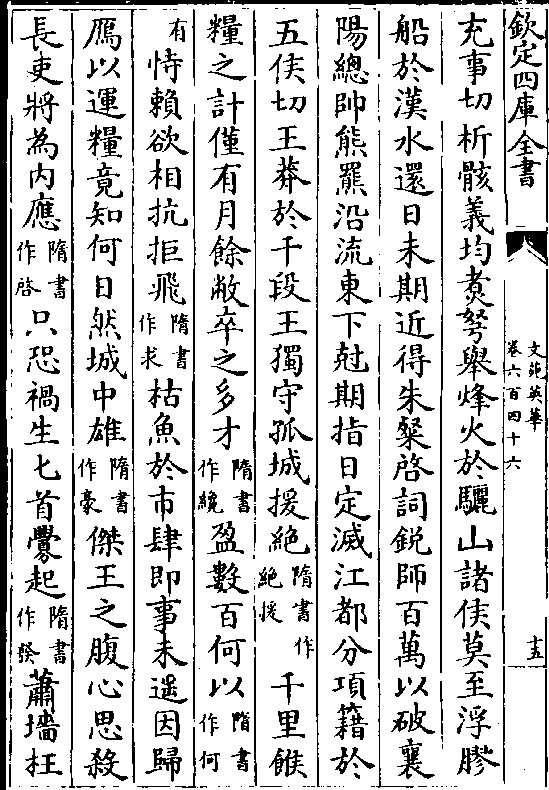 欽定四庫全書
文苑英華
卷六百四十六
十五
充事切析骸義均煑弩舉烽火於驪山諸侯莫至浮膠
船於漢水還日未期近得朱粲啓詞銳師百萬以破襄
陽總帥熊羆沿流東下尅期指日定滅江都分項籍於
五侯切王莽於千段王獨守孤城援絶隋書作絶援千里餱
糧之計僅有月餘敝卒之多才隋書作纔盈數百何以隋書作何
有恃賴欲相抗拒飛隋書作求枯魚於市肆即事未遥因歸
鴈以運糧竟知何日然城中雄隋書作豪傑王之腹心思殺
長吏將為内應隋書作啓只恐禍生匕首釁起隋書作發蕭墻枉